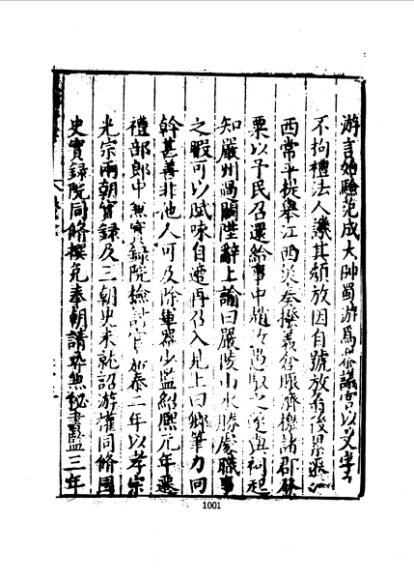 游言始驗范成大帥蜀游爲參議官以文字
不拘禮法人譏其頹放因自號放翁後累遷江
西常平提舉江西災奏撥義倉賑濟檄諸郡發
粟以予民召還給事中趙汝愚駁之遂與祠起
知嚴州過闕陛辭上諭曰嚴陵山水勝處職事
之暇可以賦咏自適再召入見上曰卿筆力回
斡甚善非他人可及除軍器少監紹熙元年遷
禮部郎中兼實錄院檢討官嘉泰二年以孝宗
光宗兩朝實錄及三朝史未就詔游權同脩國
史實錄院同脩撰免奉朝請尋兼秘書監三年
1001